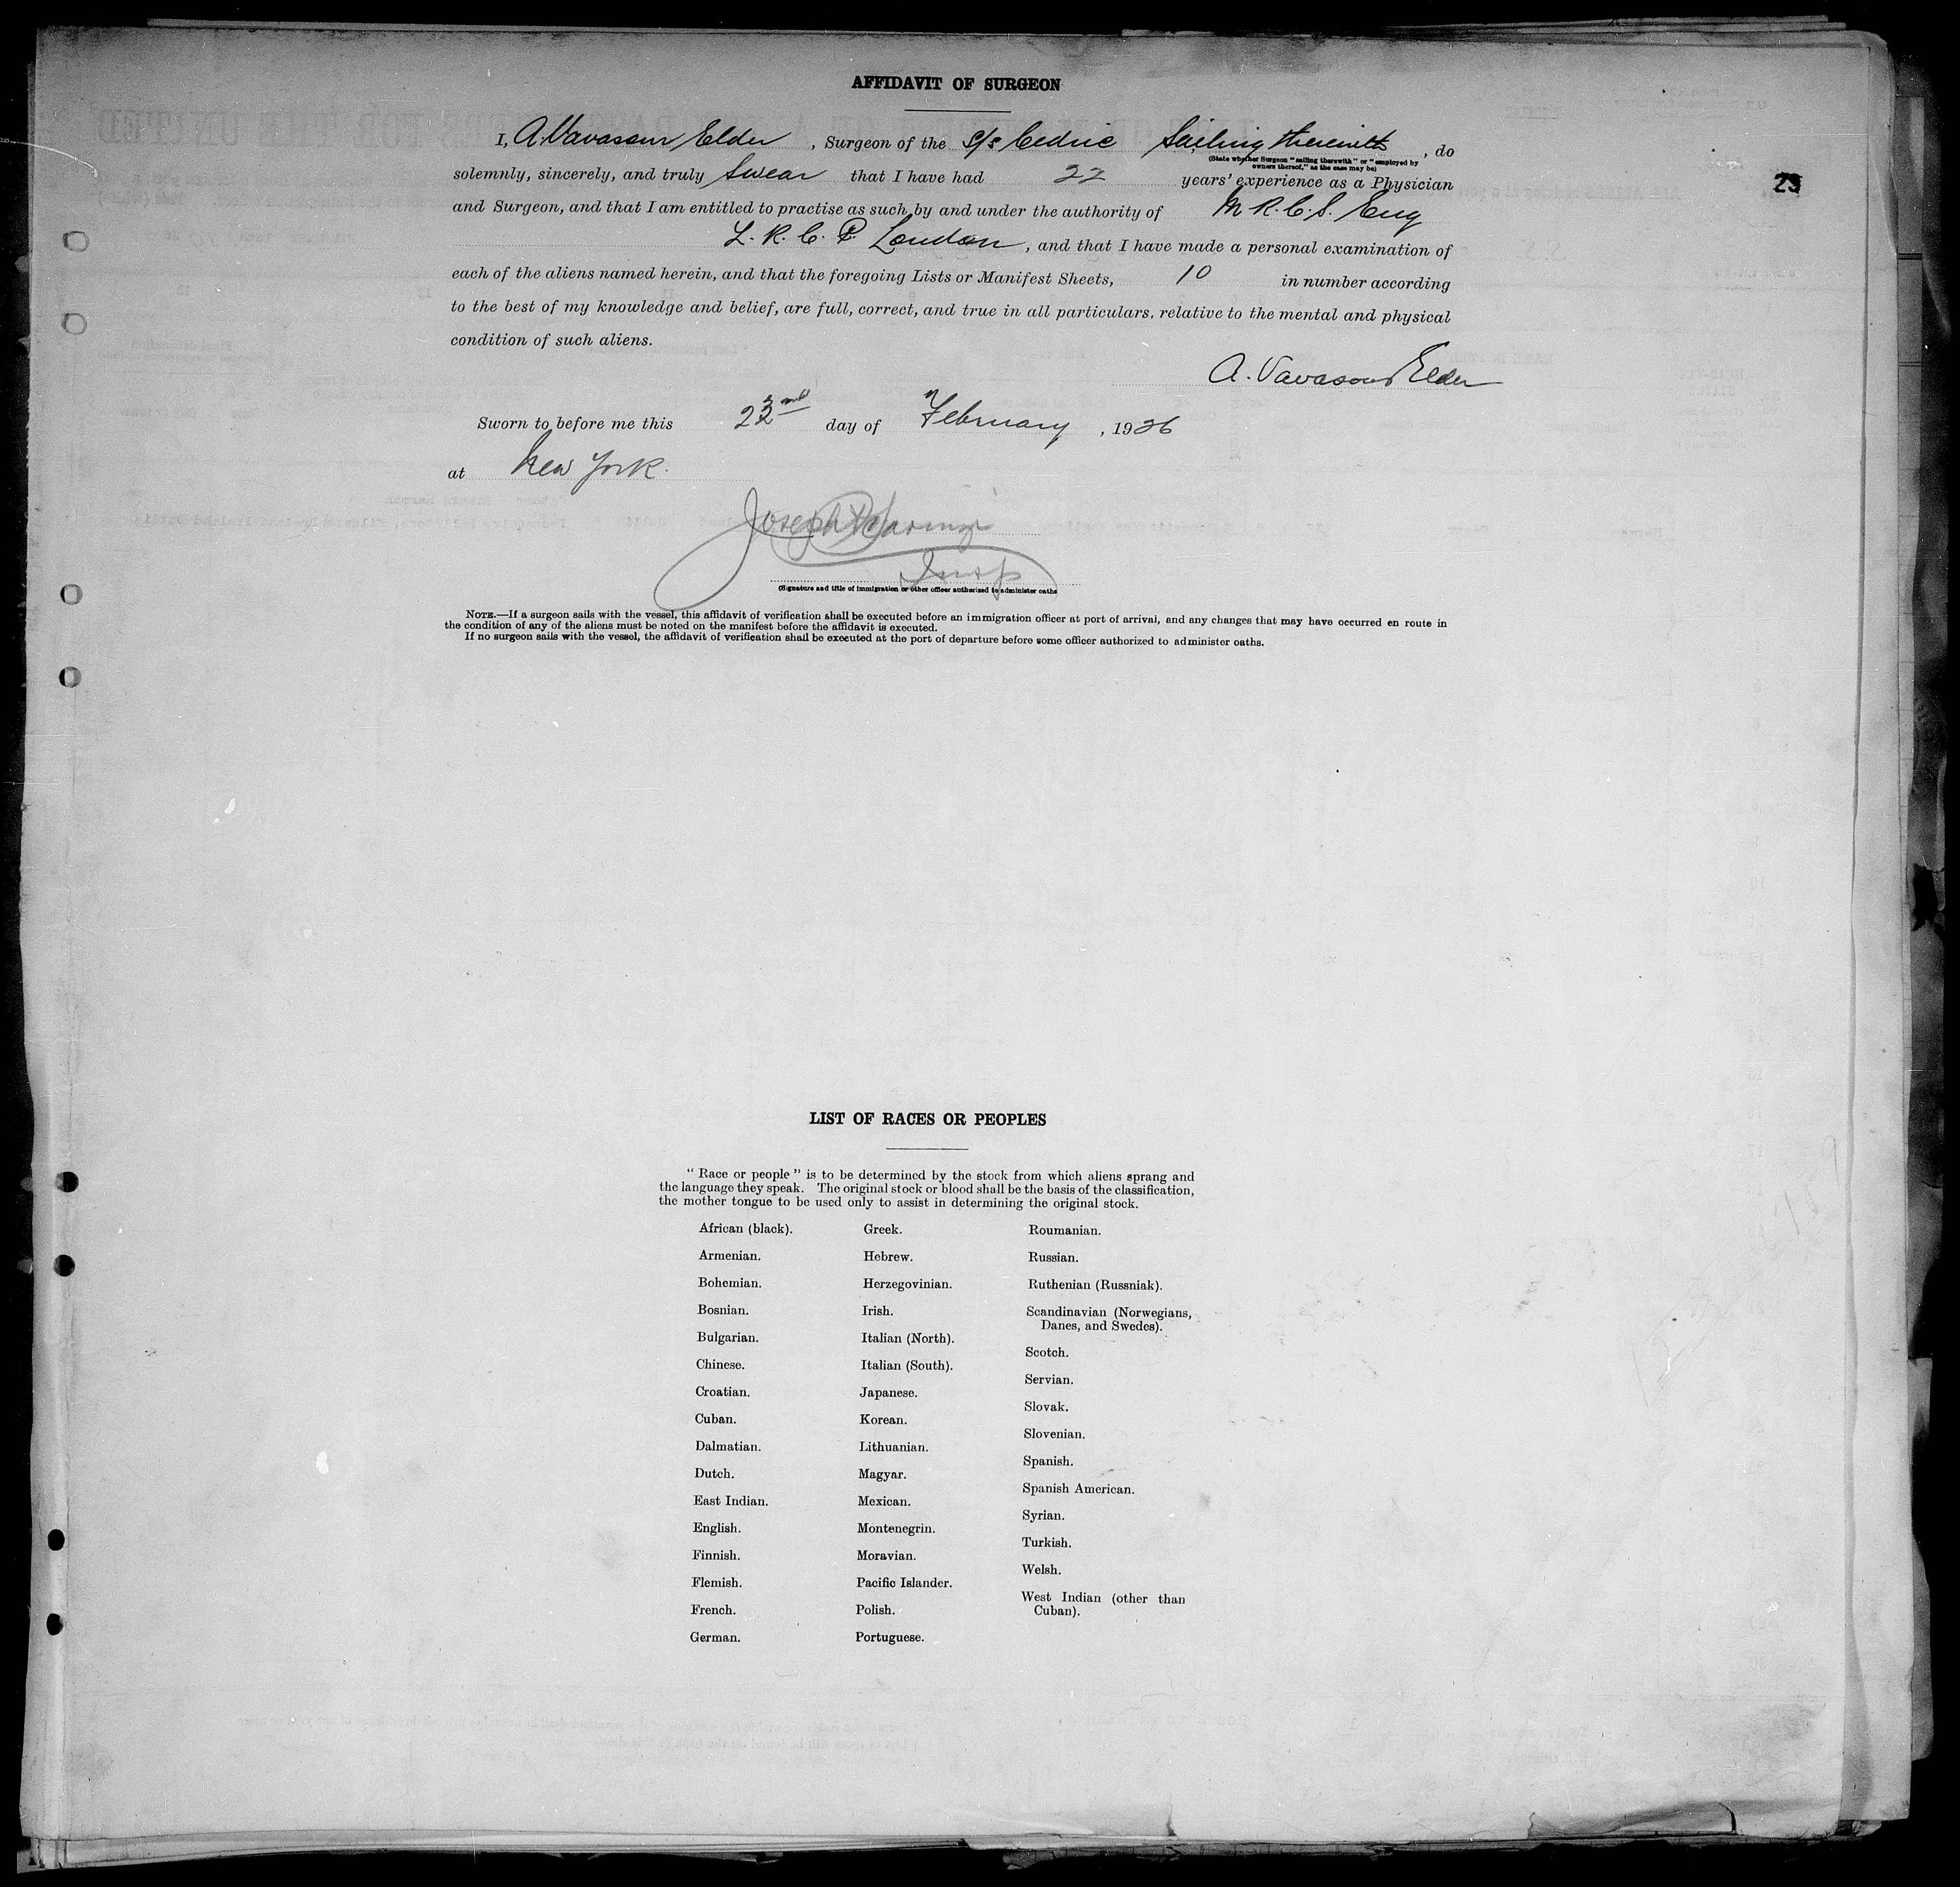 AFFIDAVIT OF SURGEON
I, A. Vavasour Elder, Surgeon of the S/S Cedric Sailing therewith, do
(State whether Surgeon "sailing therewith" or "employed by
owners thereof," as the case may be)
solemnly, sincerely, and truly Swear that I have had 22 years' experience as a Physician
25
and Surgeon, and that I am entitled to practise as such by and under the authority of M.R.C.S. Eng
L.R.C.P. London, and that I have made a personal examination of
each of the aliens named herein, and that the foregoing Lists or Manifest Sheets, 10 in number according
to the best of my knowledge and belief, are full, correct, and true in all particulars, relative to the mental and physical
condition of such aliens.
A. Vavasour Elder
Sworn to before me this 22nd day of February, 1926
at New York.
Joseph
Insp
(Signature and title of immigration or other officer authorized to administer oaths
NOTE.—If a surgeon sails with the vessel, this affidavit of verification shall be executed before an immigration officer at port of arrival, and any changes that may have occurred en route in
the condition of any of the aliens must be noted on the manifest before the affidavit is executed.
If no surgeon sails with the vessel, the affidavit of verification shall be executed at the port of departure before some officer authorized to administer oaths.
LIST OF RACES OR PEOPLES
"Race or people" is to be determined by the stock from which aliens sprang and
the language they speak. The original stock or blood shall be the basis of the classification,
the mother tongue to be used only to assist in determining the original stock.
African (black).
Armenian.
Bohemian.
Bosnian.
Bulgarian.
Chinese.
Croatian.
Cuban.
Dalmatian.
Dutch.
East Indian.
English.
Finnish.
Flemish.
French.
German.
Greek.
Hebrew.
Herzegovinian.
Irish.
Italian (North).
Italian (South).
Japanese.
Korean.
Lithuanian.
Magyar.
Mexican.
Montenegrin.
Moravian.
Pacific Islander.
Polish.
Portuguese.
Roumanian.
Russian.
Ruthenian (Russniak).
Scandinavian (Norwegians,
Danes, and Swedes).
Scotch.
Servian.
Slovak.
Slovenian.
Spanish.
Spanish American.
Syrian.
Turkish.
Welsh.
West Indian (other than
Cuban).